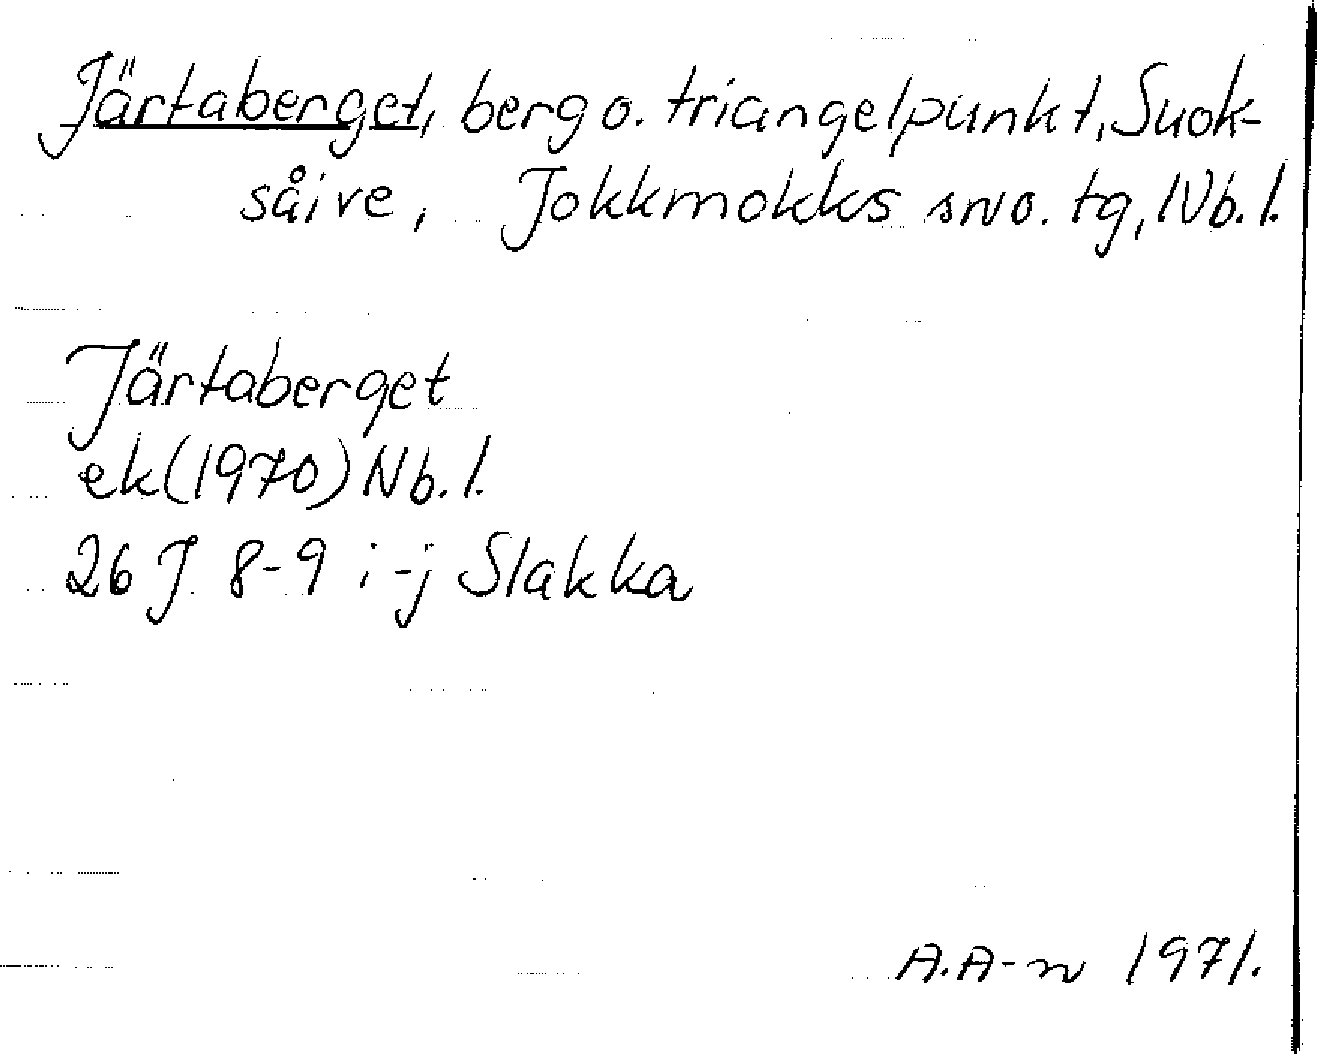 Järtaberget, berg o. triangelpunkt, Suok-
såive, Jokkmokks sn o. tg, Nb. l.
Järtaberget
ek (1970) Nb. l.
26 J 8-9 i-j Slakka
A.A-n 1971.